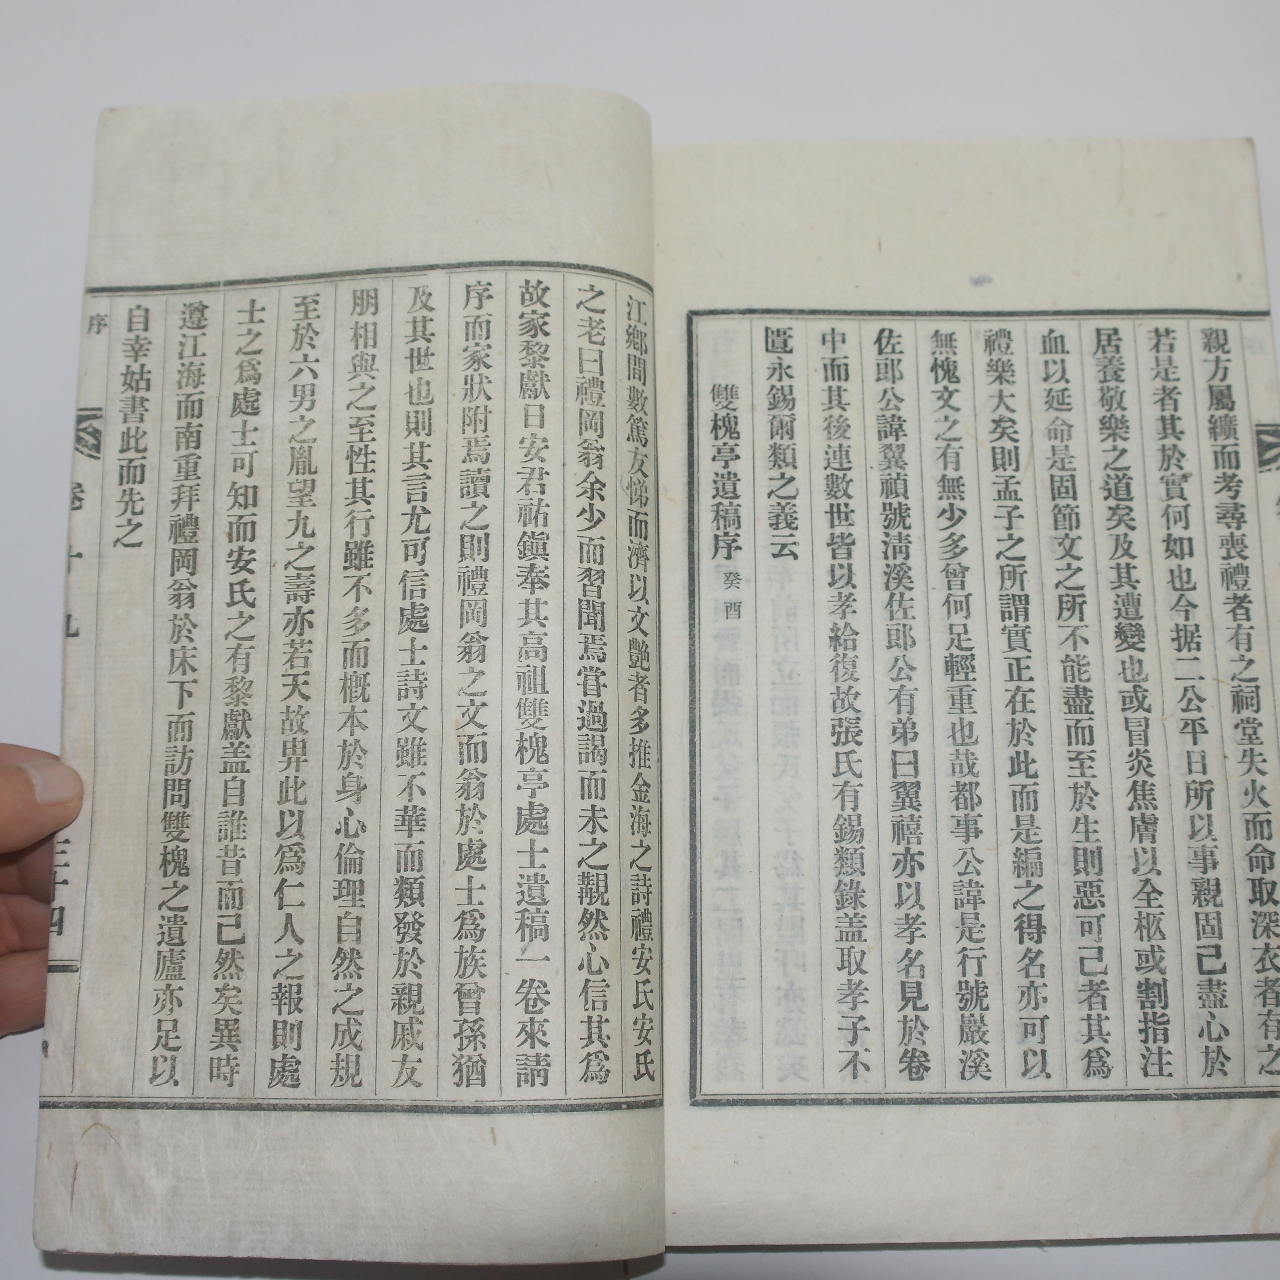 親方屬纊而考尋喪禮者有之祠堂失火而命取深衣者有之
若是者其於實何如也今据二公平日所以事親固已盡心於
居養敬樂之道矣及其遭變也或冒炎焦膚以全柩或割指注
血以延命是固節文之所不能盡而至於生則惡可已者其爲
禮樂大矣則孟子之所謂實正在於此而是編之得名亦可以
無愧文之有無少多曾何足輕重也哉都事公諱是行號嚴溪
佐郞公諱翼禎號淸溪佐郞公有弟曰翼禧亦以孝名見於卷
中而其後連數世皆以孝給復故張氏有錫類錄盖取孝子不
匱永錫爾類之義云
雙槐亭遺稿序 癸酉
江鄉間數篤友悌而濟以文艶者多推金海之詩禮安氏安氏
之老曰禮岡翁余少而習聞焉甞過謁而未之覯然心信其爲
故家黎獻日安君祐鎭奉其高祖雙槐亭處士遺稿一卷來請
序而家狀附焉讀之則禮岡翁之文而翁於處士爲族曾孫猶
及其世也則其言尤可信處士詩文雖不華而類發於親戚友
朋相與之至性其行雖不多而槪本於身心倫理自然之成規
至於六男之胤望九之壽亦若天故畀此以爲仁人之報則處
士之爲處士可知而安氏之有黎獻盖自誰昔而已然矣異時
遵江海而南重拜禮岡翁於床下而訪問雙槐之遺廬亦足以
自幸姑書此而先之
序 卷十九 三十四